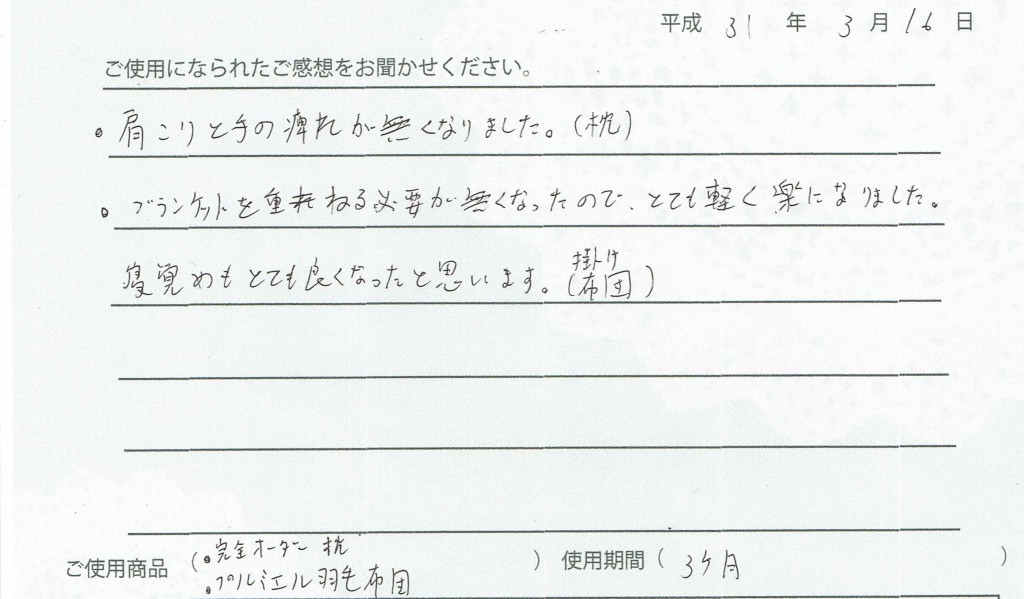 平成 31 年 3 月 16 日
ご使用になられたご感想をお聞かせください。
・肩こりと手の痺れが無くなりました。(枕)
・ブランケットを重ねる必要が無くなったので、とても軽く楽になりました。
寝覚めもとても良くなったと思います。(掛け布団)
ご使用商品 (・完全オーダー枕
・プルミエル羽毛布団) 使用期間 ( 3ケ月 )